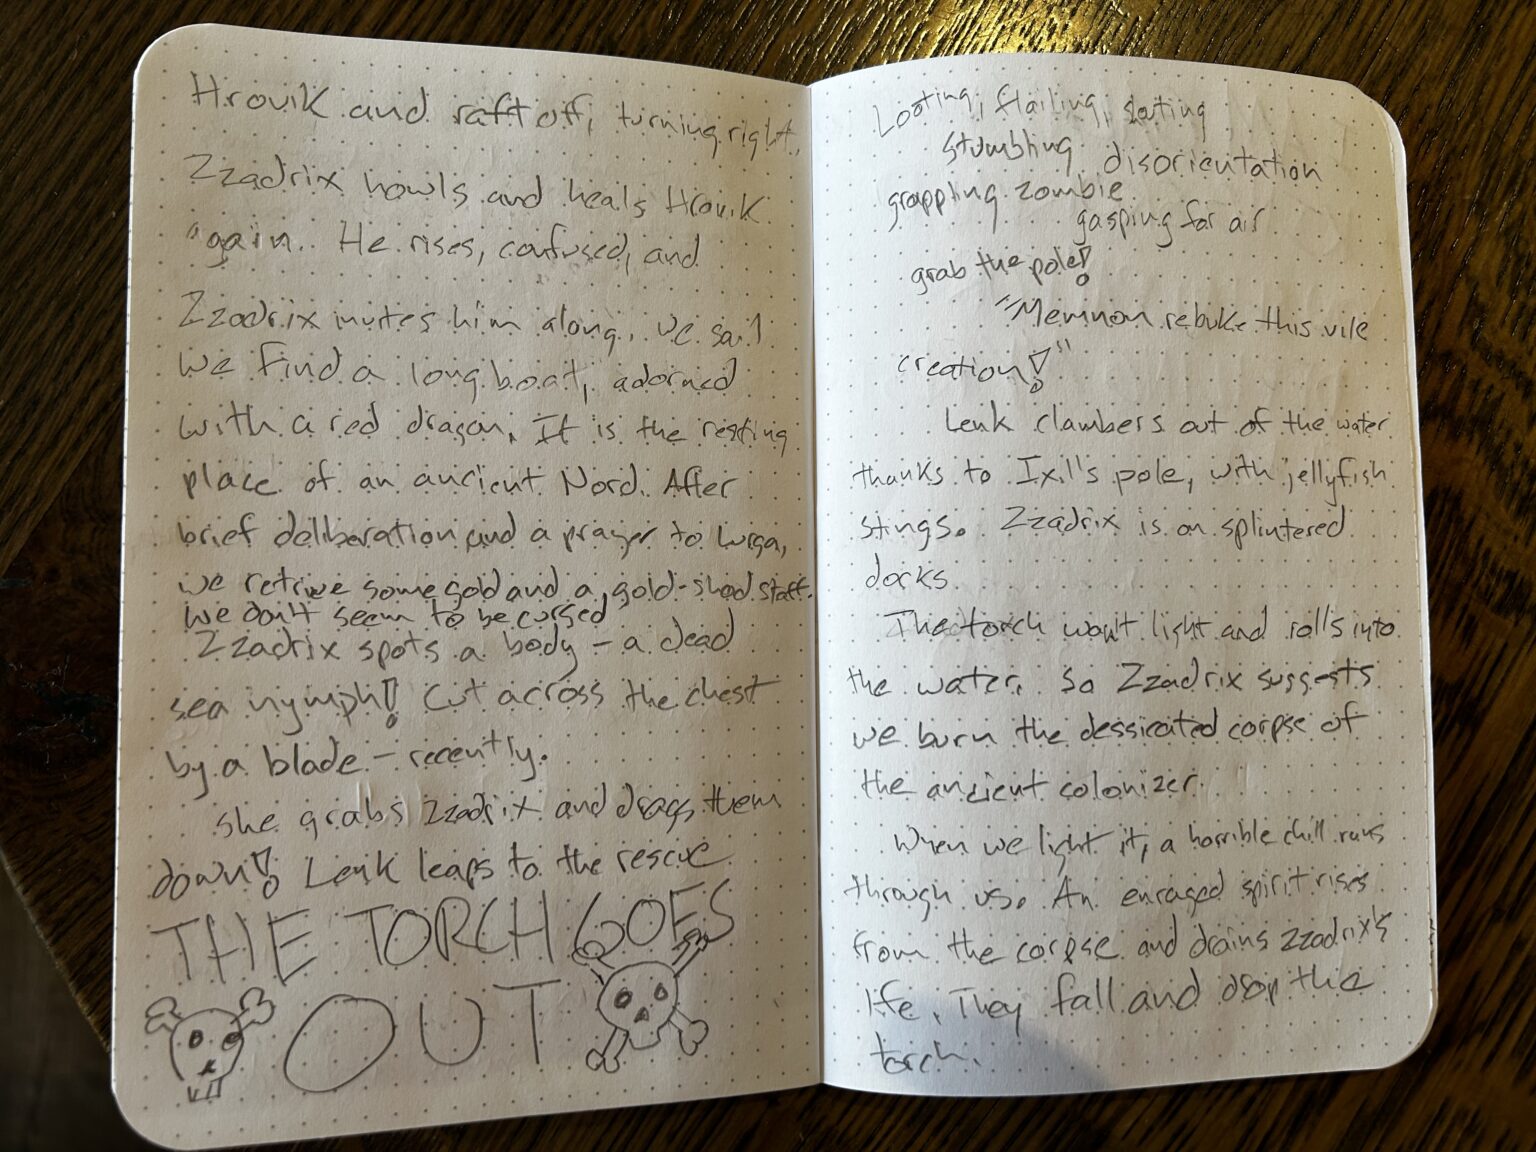 Hrovik and raft off, turning right.
Zzadrix howls and heals Hrovik
again. He rises, confused, and
Zzadrix invites him along. We sail
We find a longboat, adorned
with a red dragon. It is the resting
place of an ancient Nord. After
brief deliberation and a prayer to Luiga,
we retrive some gold and a gold-shod staff.
We don't seem to be cursed
Zzadrix spots a body – a dead
sea nymph! Cut across the chest
by a blade – recently.
She grabs Zzadrix and drags them
down! Lenk leaps to the rescue
THE TORCH GOES
OUT
Looting, flailing,
stumbling disorientation
grappling zombie
gasping for air
grab the pole!
"Memnon rebuke this vile
creation!"
Lenk clambers out of the water
thanks to Ixill's pole, with jellyfish
stings. Zzadrix is on splintered
docks
The torch won't light and rolls into
the water. So Zzadrix suggests
we burn the dessicated corpse of
the ancient colonizer.
When we light it, a horrible chill runs
through us. An enraged spirit rises
from the corpse and drains Zzadrix's
life. They fall and drop the
torch.